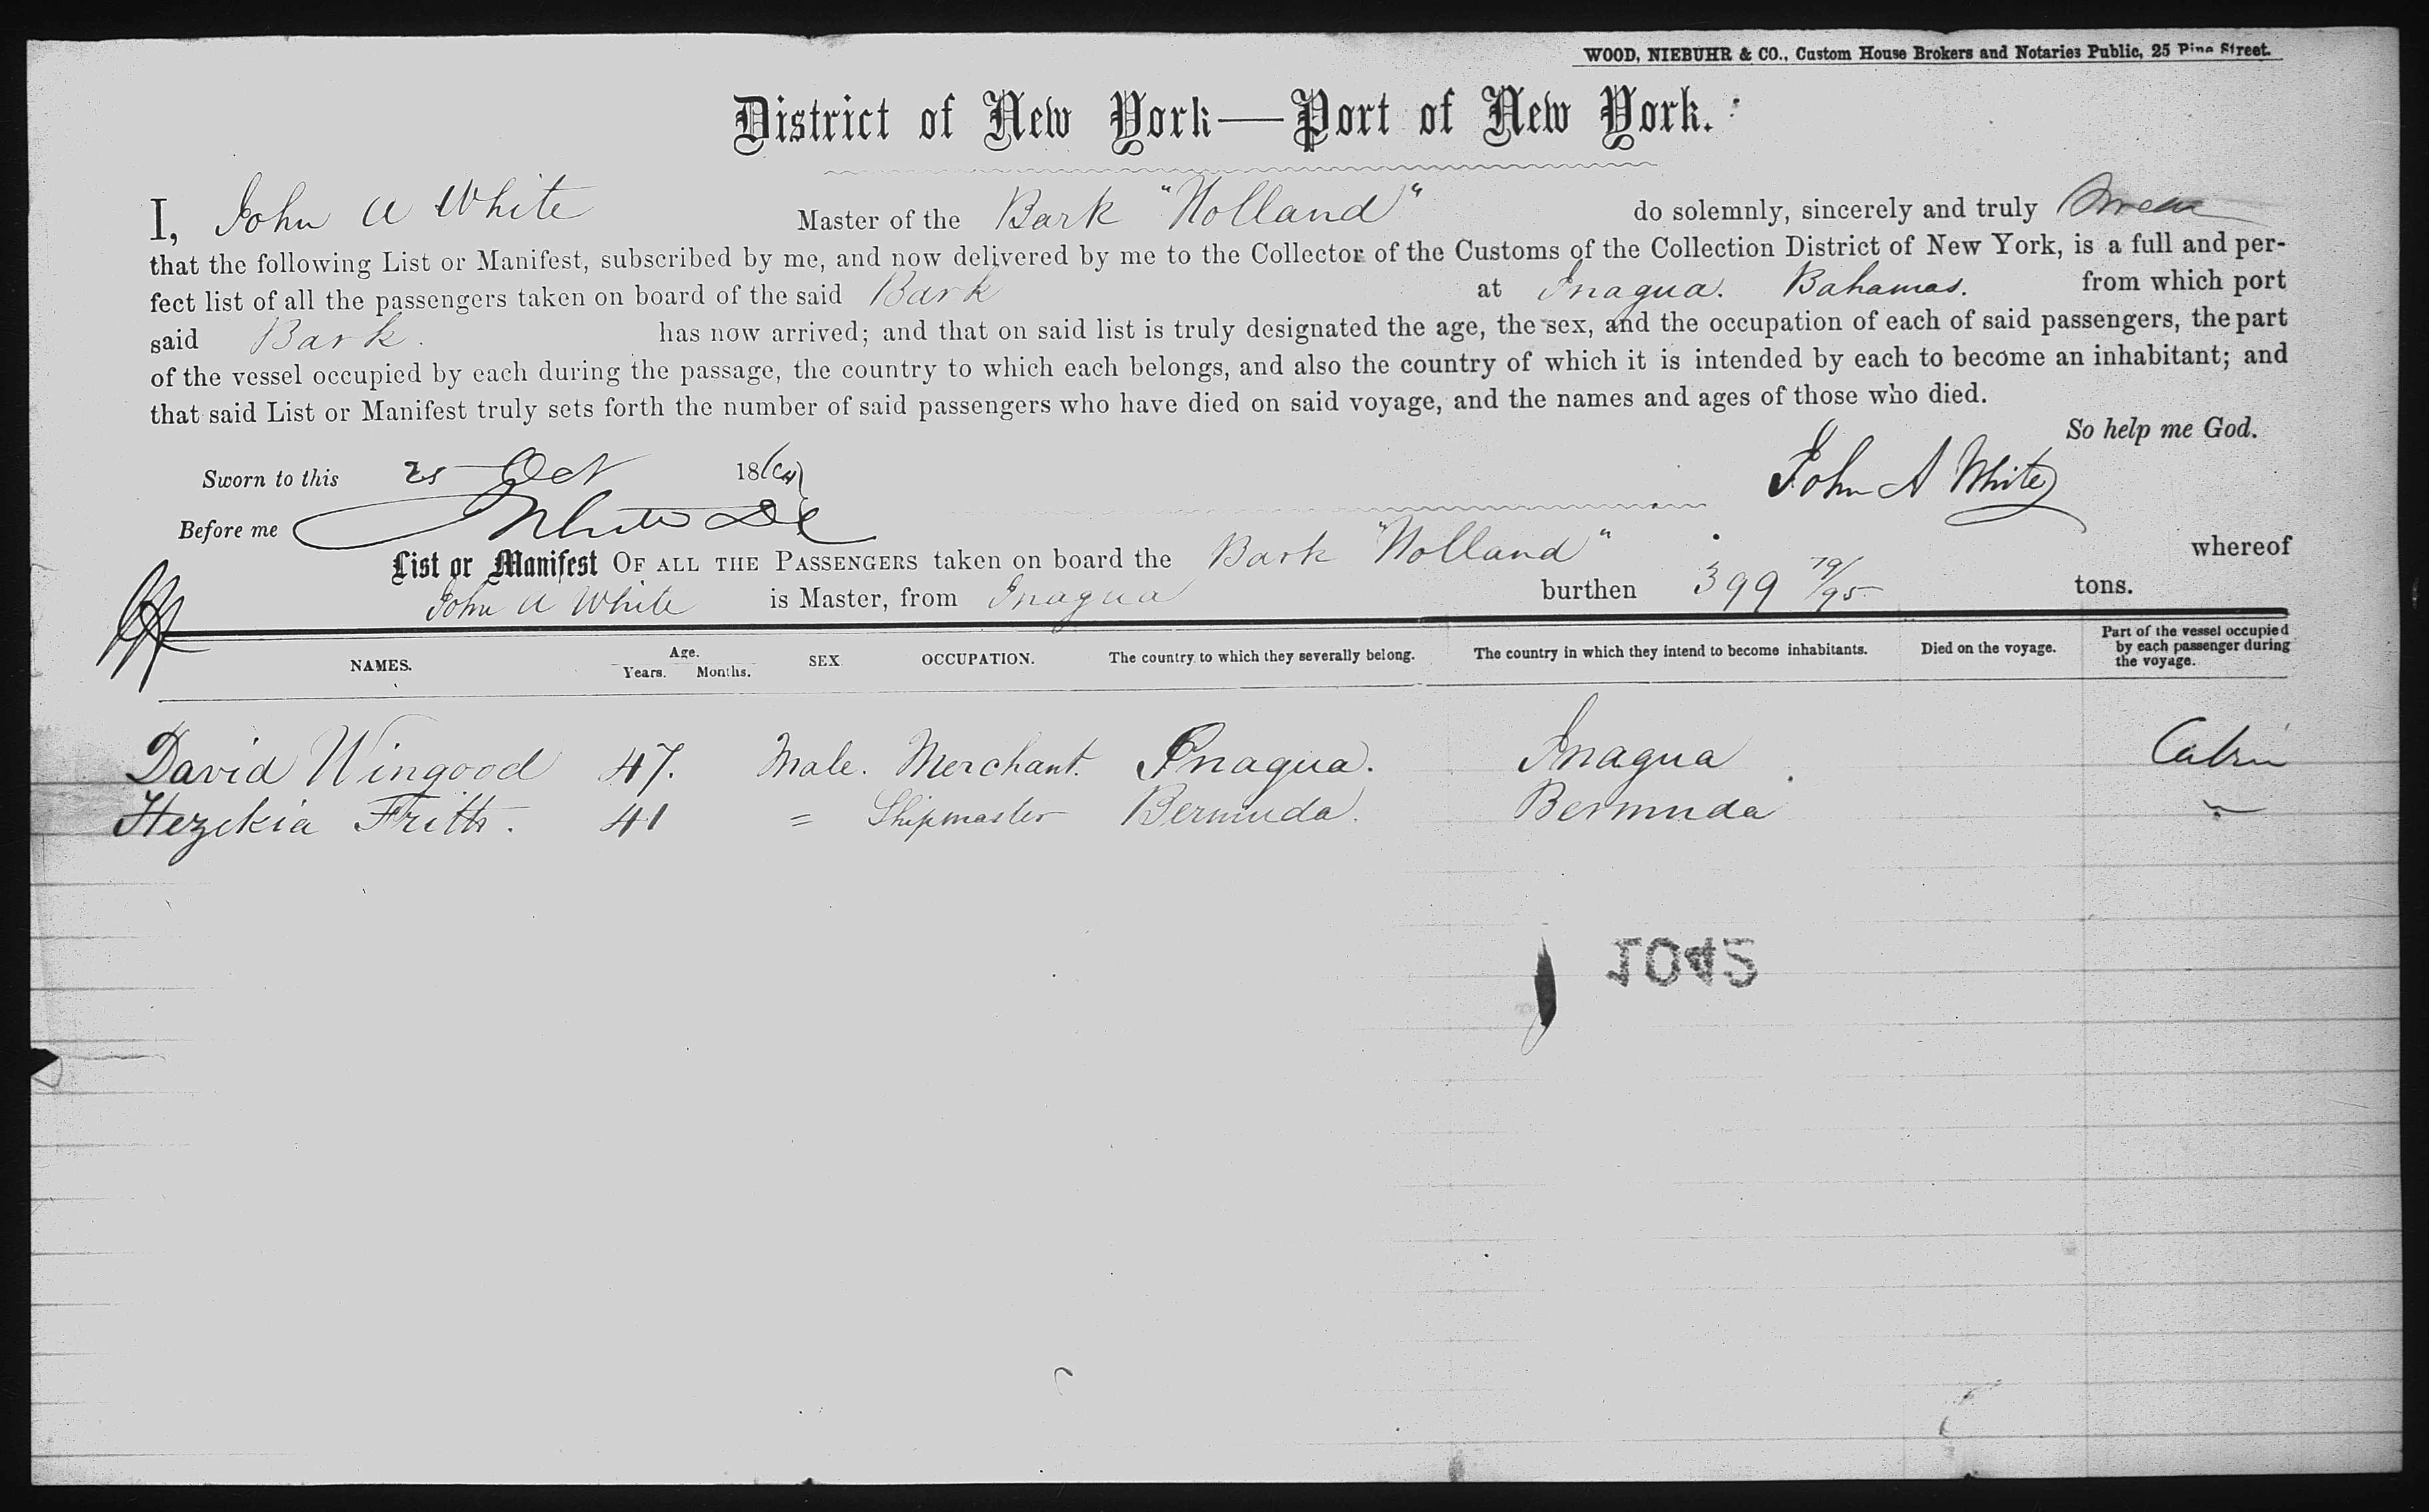 WOOD, NIEBUHR & CO., Custom House Brokers and Notaries Public, 25 Pine Street.
District of New York—Port of New York.
I, John A White Master of the Bark "Holland" do solemnly, sincerely and truly Swear
that the following List or Manifest, subscribed by me, and now delivered by me to the Collector of the Customs of the Collection District of New York, is a full and per-
fect list of all the passengers taken on board of the said Bark at Inagua. Bahamas. from which port
said Bark. has now arrived; and that on said list is truly designated the age, the sex, and the occupation of each of said passengers, the part
of the vessel occupied by each during the passage, the country to which each belongs, and also the country of which it is intended by each to become an inhabitant; and
that said List or Manifest truly sets forth the number of said passengers who have died on said voyage, and the names and ages of those who died.
So help me God.
Sworn to this 25 Oct 186 John A White
Before me
List or Manifest OF ALL THE PASSENGERS taken on board the Bark "Holland" whereof
John A White is Master, from Inagua burthen 399 79/95 tons.
NAMES. Age. Years. Months. SEX OCCUPATION. The country to which they severally belong. The country in which they intend to become inhabitants. Died on the voyage. Part of the vessel occupied by each passenger during the voyage.
David Wingood 47. Male. Merchant. Inagua. Inagua Cabin
Hezekia Frith. 41 = Shipmaster Bermuda. Bermuda "